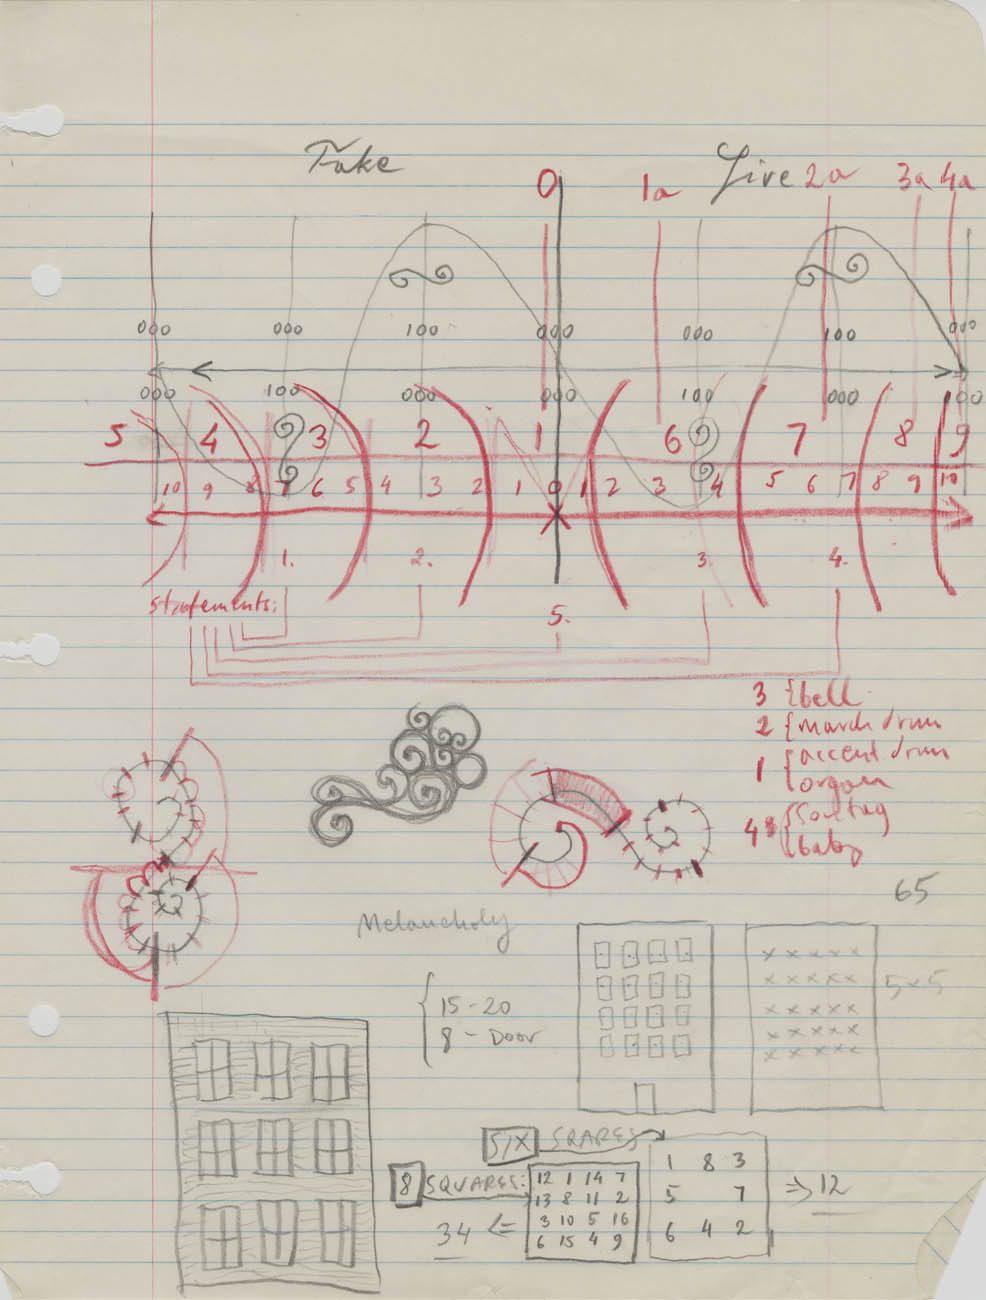 Fake 0 1a Live 2a 3a 4a
000 000 100 000 000 100 000
000 100 000 000 100 000 100
5 4 3 2 1 6 7 8 9
10 9 8 7 6 5 4 3 2 1 0 1 2 3 4 5 6 7 8 9 10
1. 2. 3. 4.
statements:
5.
3 { bell
2 { march drum
1 { accent drum
organ
4
baby
65
Melancholy
15-20
8 - Door
5x5
SIX SQARES
1 8 3
5 7
6 4 2
=> 12
8 SQUARES:
12 1 14 7
13 8 11 2
3 10 5 16
6 15 4 9
34 <=